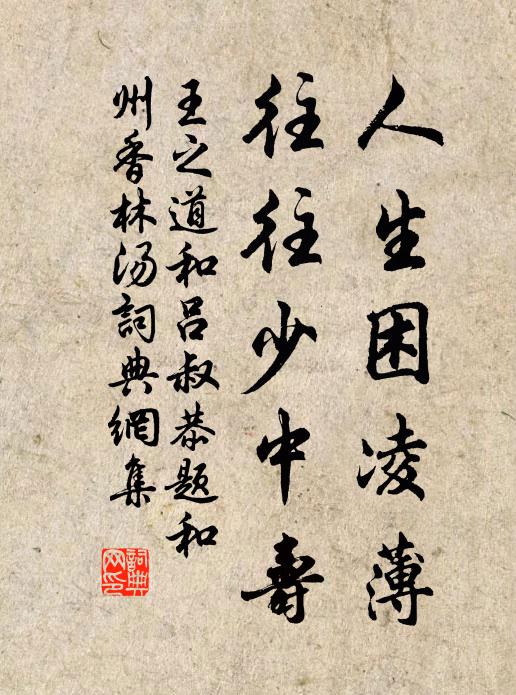 人生困凌薄
往往少中壽
王之道和吕叔恭题和
州香林汤詞典網集
詞典
网印